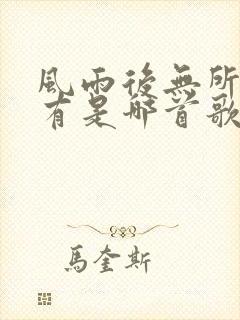 風雨後無所
有是哪首歌
馬奎斯